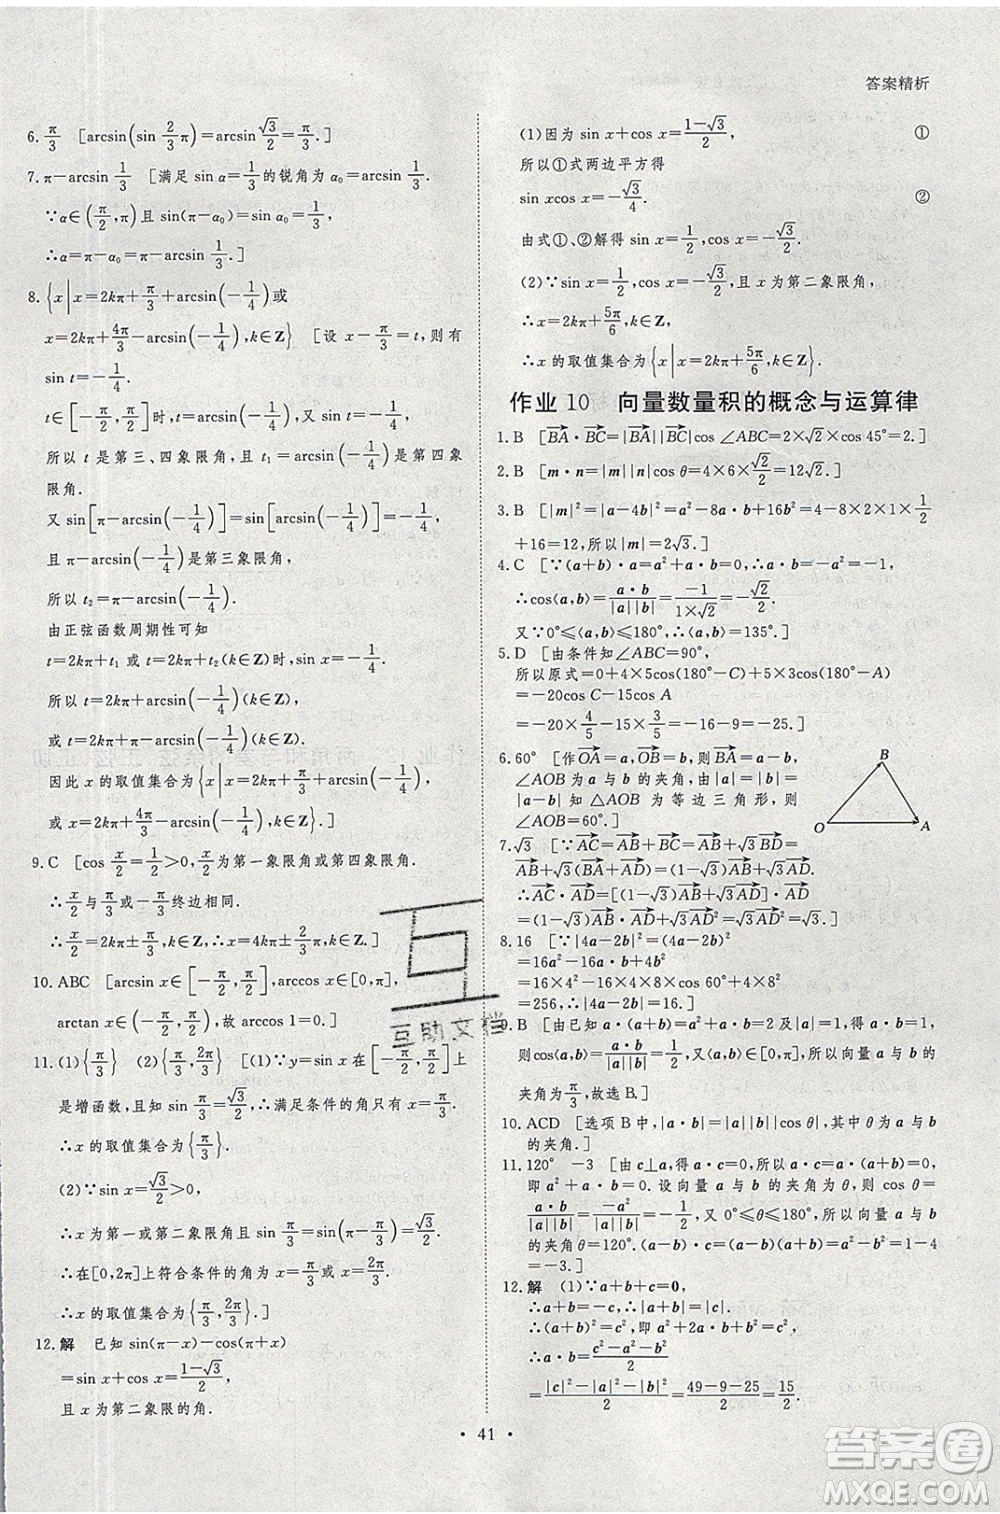 答案精析
6. π/3 [arcsin(sin 2/3 π)=arcsin √3/2=π/3.]
7. π－arcsin 1/3 [满足 sin α=1/3的锐角为 α₀=arcsin 1/3.
∵α∈(π/2,π)且 sin(π－α₀)=sin α₀=1/3,
∴α=π－α₀=π－arcsin 1/3.]
8. {x|x=2kπ+π/3+arcsin(－1/4)或
x=2kπ+4π/3－arcsin(－1/4),k∈Z} [设 x－π/3=t,则有
sin t=－1/4.
t∈[－π/2,π/2]时,t=arcsin(－1/4),又 sin t=－1/4,
所以 t 是第三、四象限角,且 t₁=arcsin(－1/4)是第四象
限角.
又 sin[π－arcsin(－1/4)]=sin[arcsin(－1/4)]=－1/4,
且 π－arcsin(－1/4)是第三象限角,
所以 t₂=π－arcsin(－1/4).
由正弦函数周期性可知
t=2kπ+t₁ 或 t=2kπ+t₂(k∈Z)时,sin t=－1/4,
所以 t=2kπ+arcsin(－1/4)(k∈Z)
或 t=2kπ+π－arcsin(－1/4)(k∈Z).
因此 x 的取值集合为{x|x=2kπ+π/3+arcsin(－1/4)或
x=2kπ+4π/3－arcsin(－1/4),k∈Z}.]
9. C [cos x/2=1/2>0,x/2为第一象限角或第四象限角.
∴x/2与π/3或－π/3终边相同.
∴x/2=2kπ±π/3,k∈Z,∴x=4kπ±2π/3,k∈Z.]
10. ABC [arcsin x∈[－π/2,π/2],arccos x∈[0,π],
arctan x∈(－π/2,π/2),故 arccos 1=0.]
11. (1){π/3} (2){π/3,2π/3} [(1)∵y=sin x 在[－π/2,π/2]上
是增函数,且知 sin π/3=√3/2,∴满足条件的角只有 x=π/3.
∴x 的取值集合为{π/3}.
(2)∵sin x=√3/2>0,
∴x 为第一或第二象限角且 sin π/3=sin(π－π/3)=√3/2.
∴在[0,2π]上符合条件的角有 x=π/3或 x=2π/3.
∴x 的取值集合为{π/3,2π/3}.]
12. 解 已知 sin(π－x)－cos(π+x)
=sin x+cos x=(1－√3)/2,
且 x 为第二象限的角.
(1)因为 sin x+cos x=(1－√3)/2, ①
所以①式两边平方得
sin xcos x=－√3/4. ②
由式①、②解得 sin x=1/2,cos x=－√3/2.
(2)∵sin x=1/2,cos x=－√3/2,且 x 为第二象限角,
∴x=2kπ+5π/6,k∈Z,
∴x 的取值集合为{x|x=2kπ+5π/6,k∈Z}.
作业 10 向量数量积的概念与运算律
1. B [BA·BC=|BA||BC|cos ∠ABC=2×√2×cos 45°=2.]
2. B [m·n=|m||n|cos θ=4×6×√2/2=12√2.]
3. B [|m|²=|a－4b|²=a²－8a·b+16b²=4－8×2×1×1/2
+16=12,所以|m|=2√3.]
4. C [∵(a+b)·a=a²+a·b=0,∴a·b=－a²=－1,
∴cos⟨a,b⟩=a·b/|a||b|=－1/(1×√2)=－√2/2.
又∵0°≤⟨a,b⟩≤180°,∴⟨a,b⟩=135°.]
5. D [由条件知∠ABC=90°,
所以原式=0+4×5cos(180°－C)+5×3cos(180°－A)
=－20cos C－15cos A
=－20×4/5－15×3/5=－16－9=－25.]
6. 60° [作OA=a,OB=b,则BA=a－b,
∠AOB 为 a 与 b 的夹角,由|a|=|b|=
|a－b|知 △AOB 为等边三角形,所以
∠AOB=60°.]
B
O
A
7. √3 [∵AC=AB+BC=AB+√3BD=
AB+√3(AD－AB)=(1－√3)AB+√3AD,
∴AC·AD=[(1－√3)AB+√3AD]·AD
=(1－√3)AB·AD+√3AD²=0+√3=√3.]
8. 16 [∵|4a－2b|²=(4a－2b)²
=16a²－16a·b+4b²
=16×4²－16×4×8×cos 60°+4×8²
=256,∴|4a－2b|=16.]
9. B [由已知 a·(b－a)=a·b－a²=2及|a|=1,故 a·b=3,
则cos⟨a,b⟩=a·b/|a||b|=3/(1×6)=1/2,∴⟨a,b⟩=π/3,所以向量 a 与 b 的
夹角为π/3,故选 B.]
10. ACD [选项 B 中,|a·b|=|a||b||cos θ|,其中 θ 为 a 与 b
的夹角.]
11. 120° －3 [由 c⊥a,得 a·c=0,所以 a·c=a·(a+b)=0,
即 a²+a·b=0. 设向量 a 与 b 的夹角为 θ,则 cos θ=
a·b/|a||b|=－|a|²/|a||b|=－1/2,又 0°≤θ≤180°,所以向量 a 与 b 的
夹角 θ=120°.(a－b)·(a+b)=a²－b²=1－4=－3.]
12. 解 (1)∵a+b+c=0,
∴a+b=－c,∴|a+b|=|c|.
∴(a+b)²=c²,即 a²+2a·b+b²=c²,
∴a·b=(c²－a²－b²)/2
=(|c|²－|a|²－|b|²)/2=(49－9－25)/2=15/2.
• 41 •
互助文档
答案圈
MXQE.COM